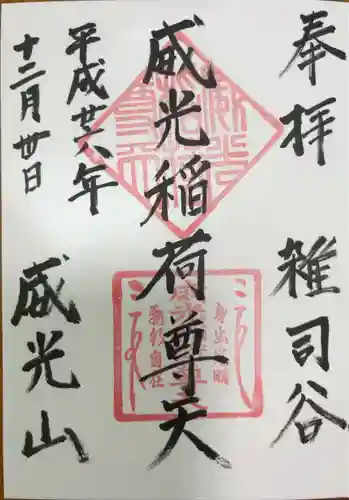 奉拝
雑司谷
威光稲荷尊天
平成廿六年
十二月卅日
威光山